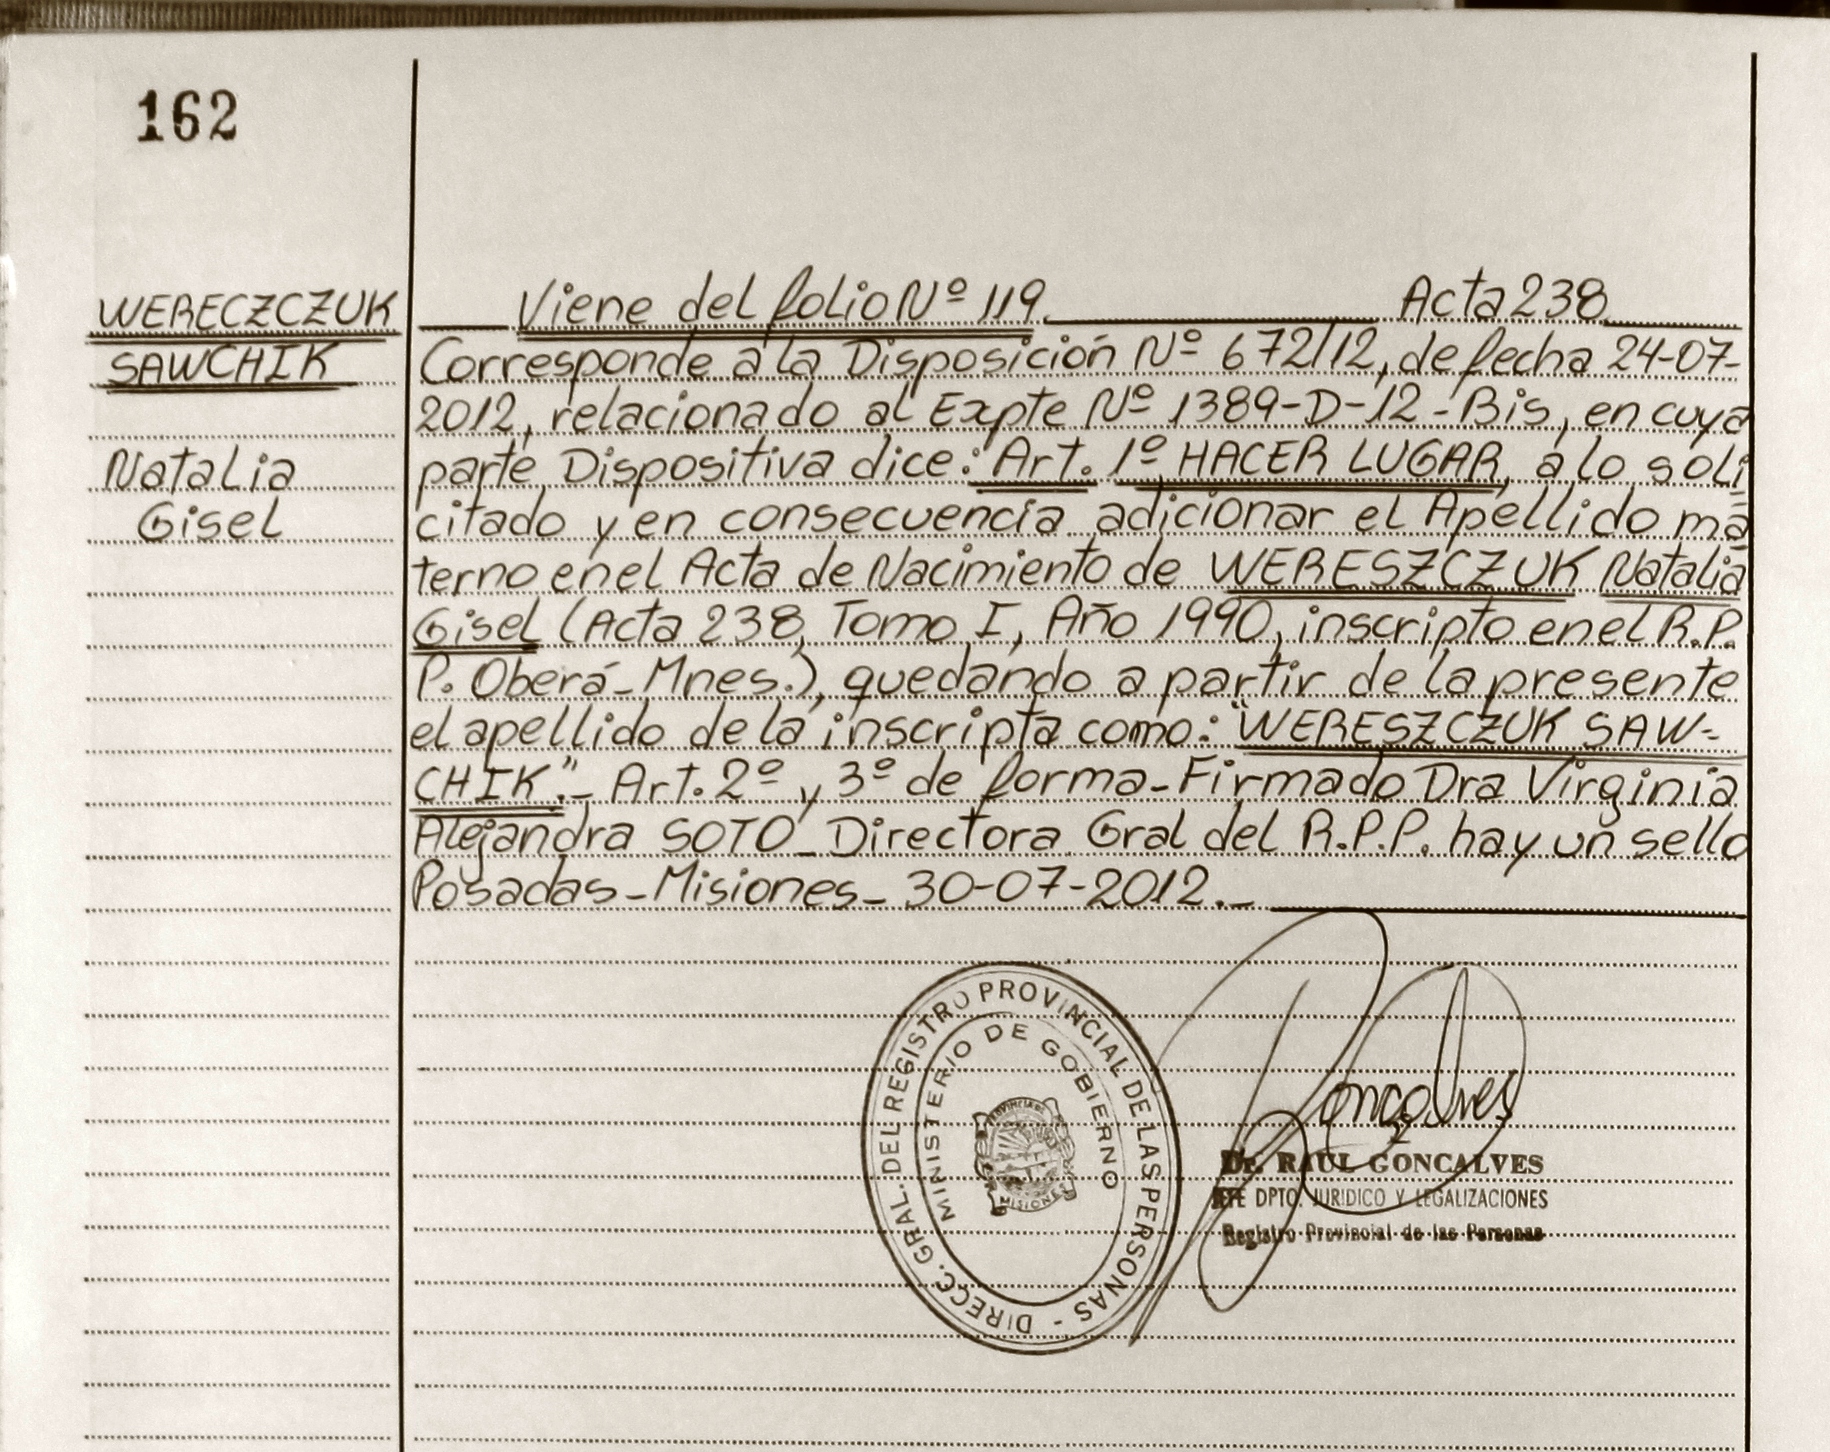 162
WERECZCZUK
SAWCHIK
Natalia
Gisel
Viene del folio Nº 119. Acta 238
Corresponde a la Disposición Nº 672/12, de fecha 24-07-
2012, relacionado al Expte Nº 1389-D-12-Bis, en cuya
parte Dispositiva dice: Art. 1º HACER LUGAR, a lo soli
citado y en consecuencia adicionar el Apellido ma
terno en el Acta de Nacimiento de WERESZCZUK Natalia
Gisel (Acta 238, Tomo I, Año 1990, inscripto en el R.P.
P. Oberá-Mnes.), quedando a partir de la presente
el apellido de la inscripta como: "WERESZCZUK SAW-
CHIK".- Art. 2º y 3º de forma-Firmado Dra Virginia
Alejandra SOTO-Directora Gral del R.P.P. hay un sello
Posadas-Misiones- 30-07-2012.-
DIRECC. GRAL. DEL REGISTRO PROVINCIAL DE LAS PERSONAS -
MINISTERIO DE GOBIERNO
PROVINCIA DE
MISIONES
Goncalves
Dr. RAUL GONCALVES
JEFE DPTO. JURIDICO Y LEGALIZACIONES
Registro Provincial de las Personas